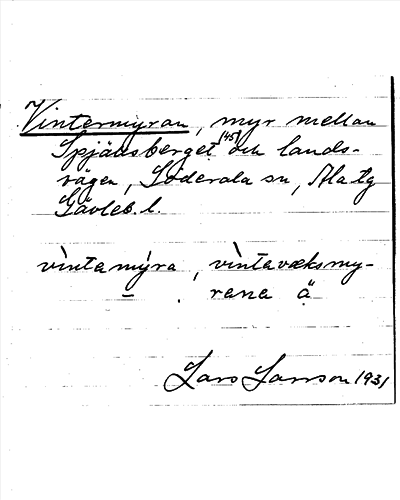 Vintermyran, myr mellan
Spjäusberget (45) och lands-
vägen, Söderala sn, Ala tg
Gävleb. l.
vìntamýra, vìntavæksmy-
rena ä
Lars Larsson 1931